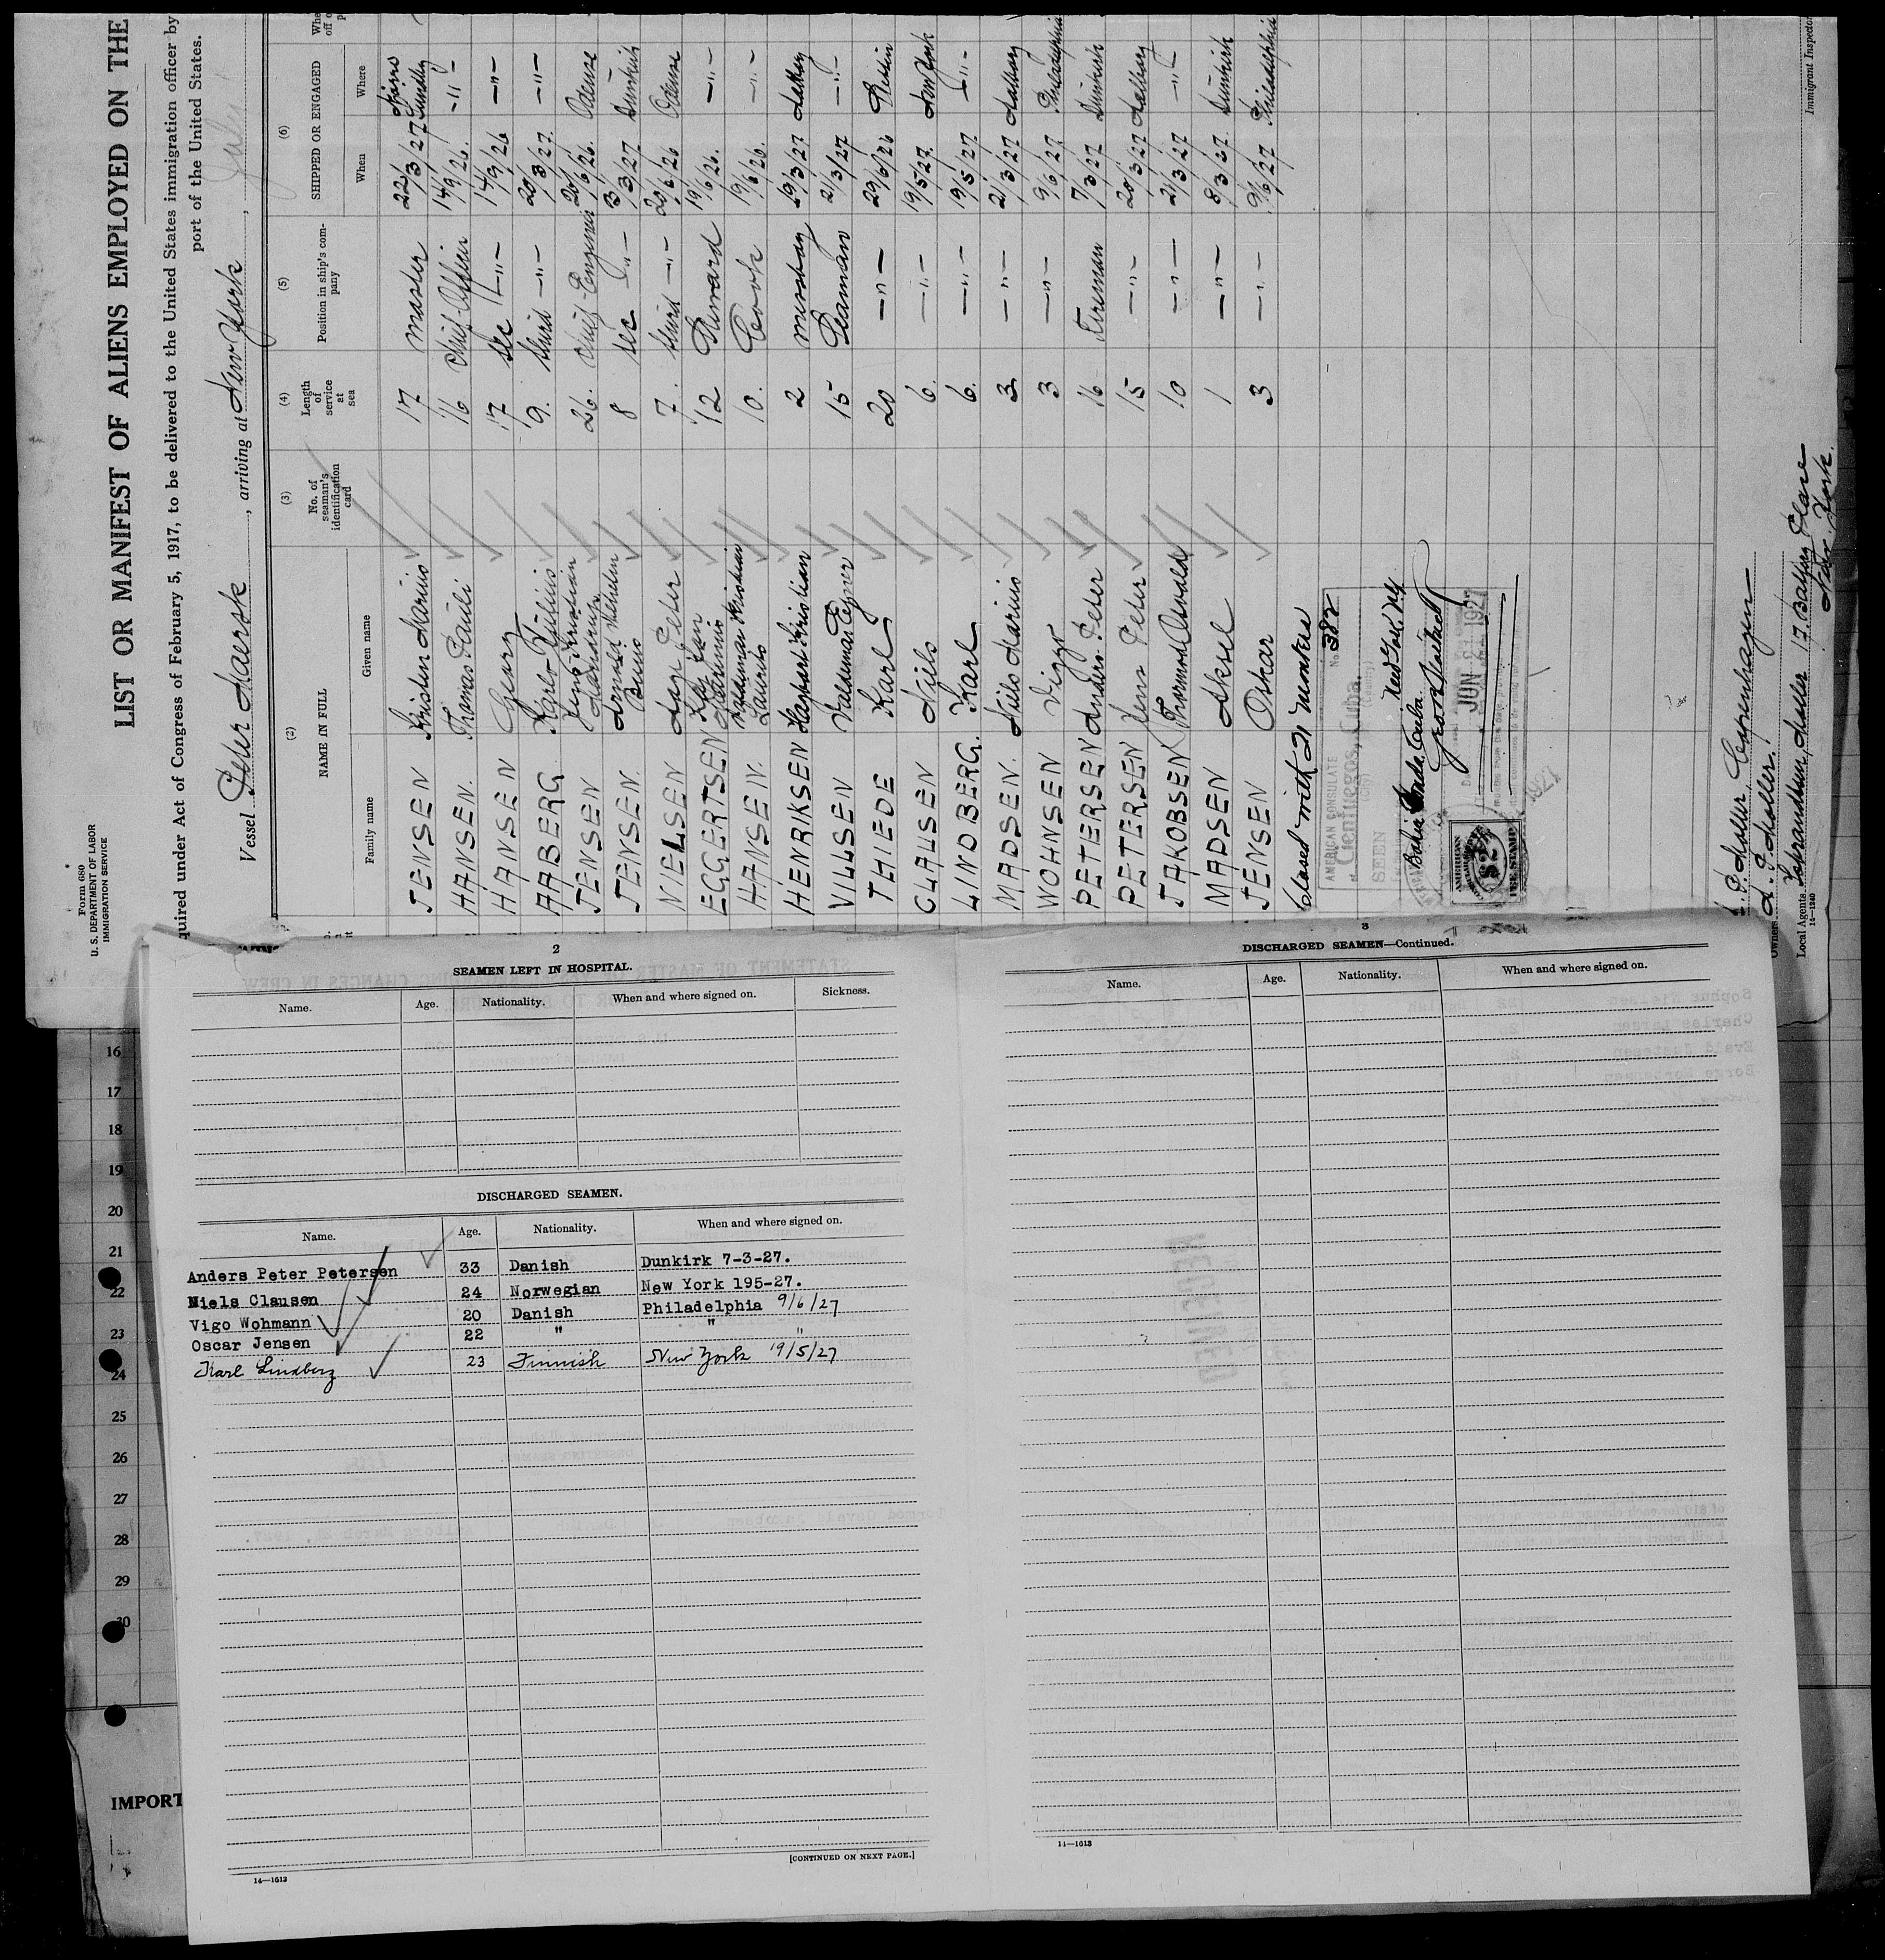 Form 680
U. S. DEPARTMENT OF LABOR
IMMIGRATION SERVICE
LIST OR MANIFEST OF ALIENS EMPLOYED ON THE
quired under Act of Congress of February 5, 1917, to be delivered to the United States immigration officer by
port of the United States.
Vessel Peter Maersk, arriving at New York,
(2) (3) (4) (5) (6)
NAME IN FULL No. of seaman's identification card Length of service at sea Position in ship's company SHIPPED OR ENGAGED
Family name Given name When Where
JENSEN Kristen Marius 17 master 22/3/27
HANSEN. Thomas Pauli 16 Chief-Officer 14/9/26. -"-
HANSEN Georg 17 sec -"- 14/9/26 -"-
AABERG Karl-Julius 9. third -"- 20/3/27. -"-
JENSEN Jens Kristian 26. Chief-Engineer 20/6/26. Odense
JENSEN. Bruno 8 sec -"- 3/3/27 Dunkirk
NIELSEN Aage Peter 7. third -"- 20/6/26 Odense
EGGERTSEN 12 Steward 19/6/26. -"-
HANSEN. Laurits 10. Cook 19/6/26. -"-
HENRIKSEN Kristian 2 messboy 29/3/27 Aalborg
VILLSEN Valdemar 15 Seaman 21/3/27 -"-
THIEDE Karl 20 -"- 29/6/26
CLAUSEN Niels 6. -"- 19/5/27. New York
LINDBERG. Karl 6. -"- 19/5/27 -"-
MADSEN. Niels Marius 3 -"- 21/3/27 Aalborg
WOHNSEN Viggo 3 -"- 9/6/27 Philadelphia
PETERSEN Anders Peter 16 Fireman 7/3/27 Dunkirk
PETERSEN Jens Peter 15 -"- 20/3/27 Aalborg
JAKOBSEN Thormod Osvald 10 -"- 21/3/27 -"-
MADSEN Aksel 1 -"- 8/3/27. Dunkirk
JENSEN Oskar 3 -"- 9/6/27 Philadelphia
Closed with 21 members
AMERICAN CONSULATE
at Cienfuegos, Cuba.
No. 382
SEEN
New York, N.Y.
Bahia Honda, Cuba.
JUN 21 1927
AMERICAN
$2
FEE STAMP
1927
Owners A. P. Moller, Copenhagen
Local Agents Moller 17. Battery Place
New York.
14—1240
Immigrant Inspector
2
SEAMEN LEFT IN HOSPITAL.
Name. Age. Nationality. When and where signed on. Sickness.
DISCHARGED SEAMEN.
Name. Age. Nationality. When and where signed on.
Anders Peter Petersen 33 Danish Dunkirk 7-3-27.
Niels Clausen 24 Norwegian New York 195-27.
Vigo Wohmann 20 Danish Philadelphia 9/6/27
Oscar Jensen 22 " " "
Karl Lindberg 23 Finnish New York 19/5/27
[CONTINUED ON NEXT PAGE.]
14—1613
3
DISCHARGED SEAMEN—Continued.
Name. Age. Nationality. When and where signed on.
14—1613
16
17
18
19
20
21
22
23
24
25
26
27
28
29
30
IMPORT